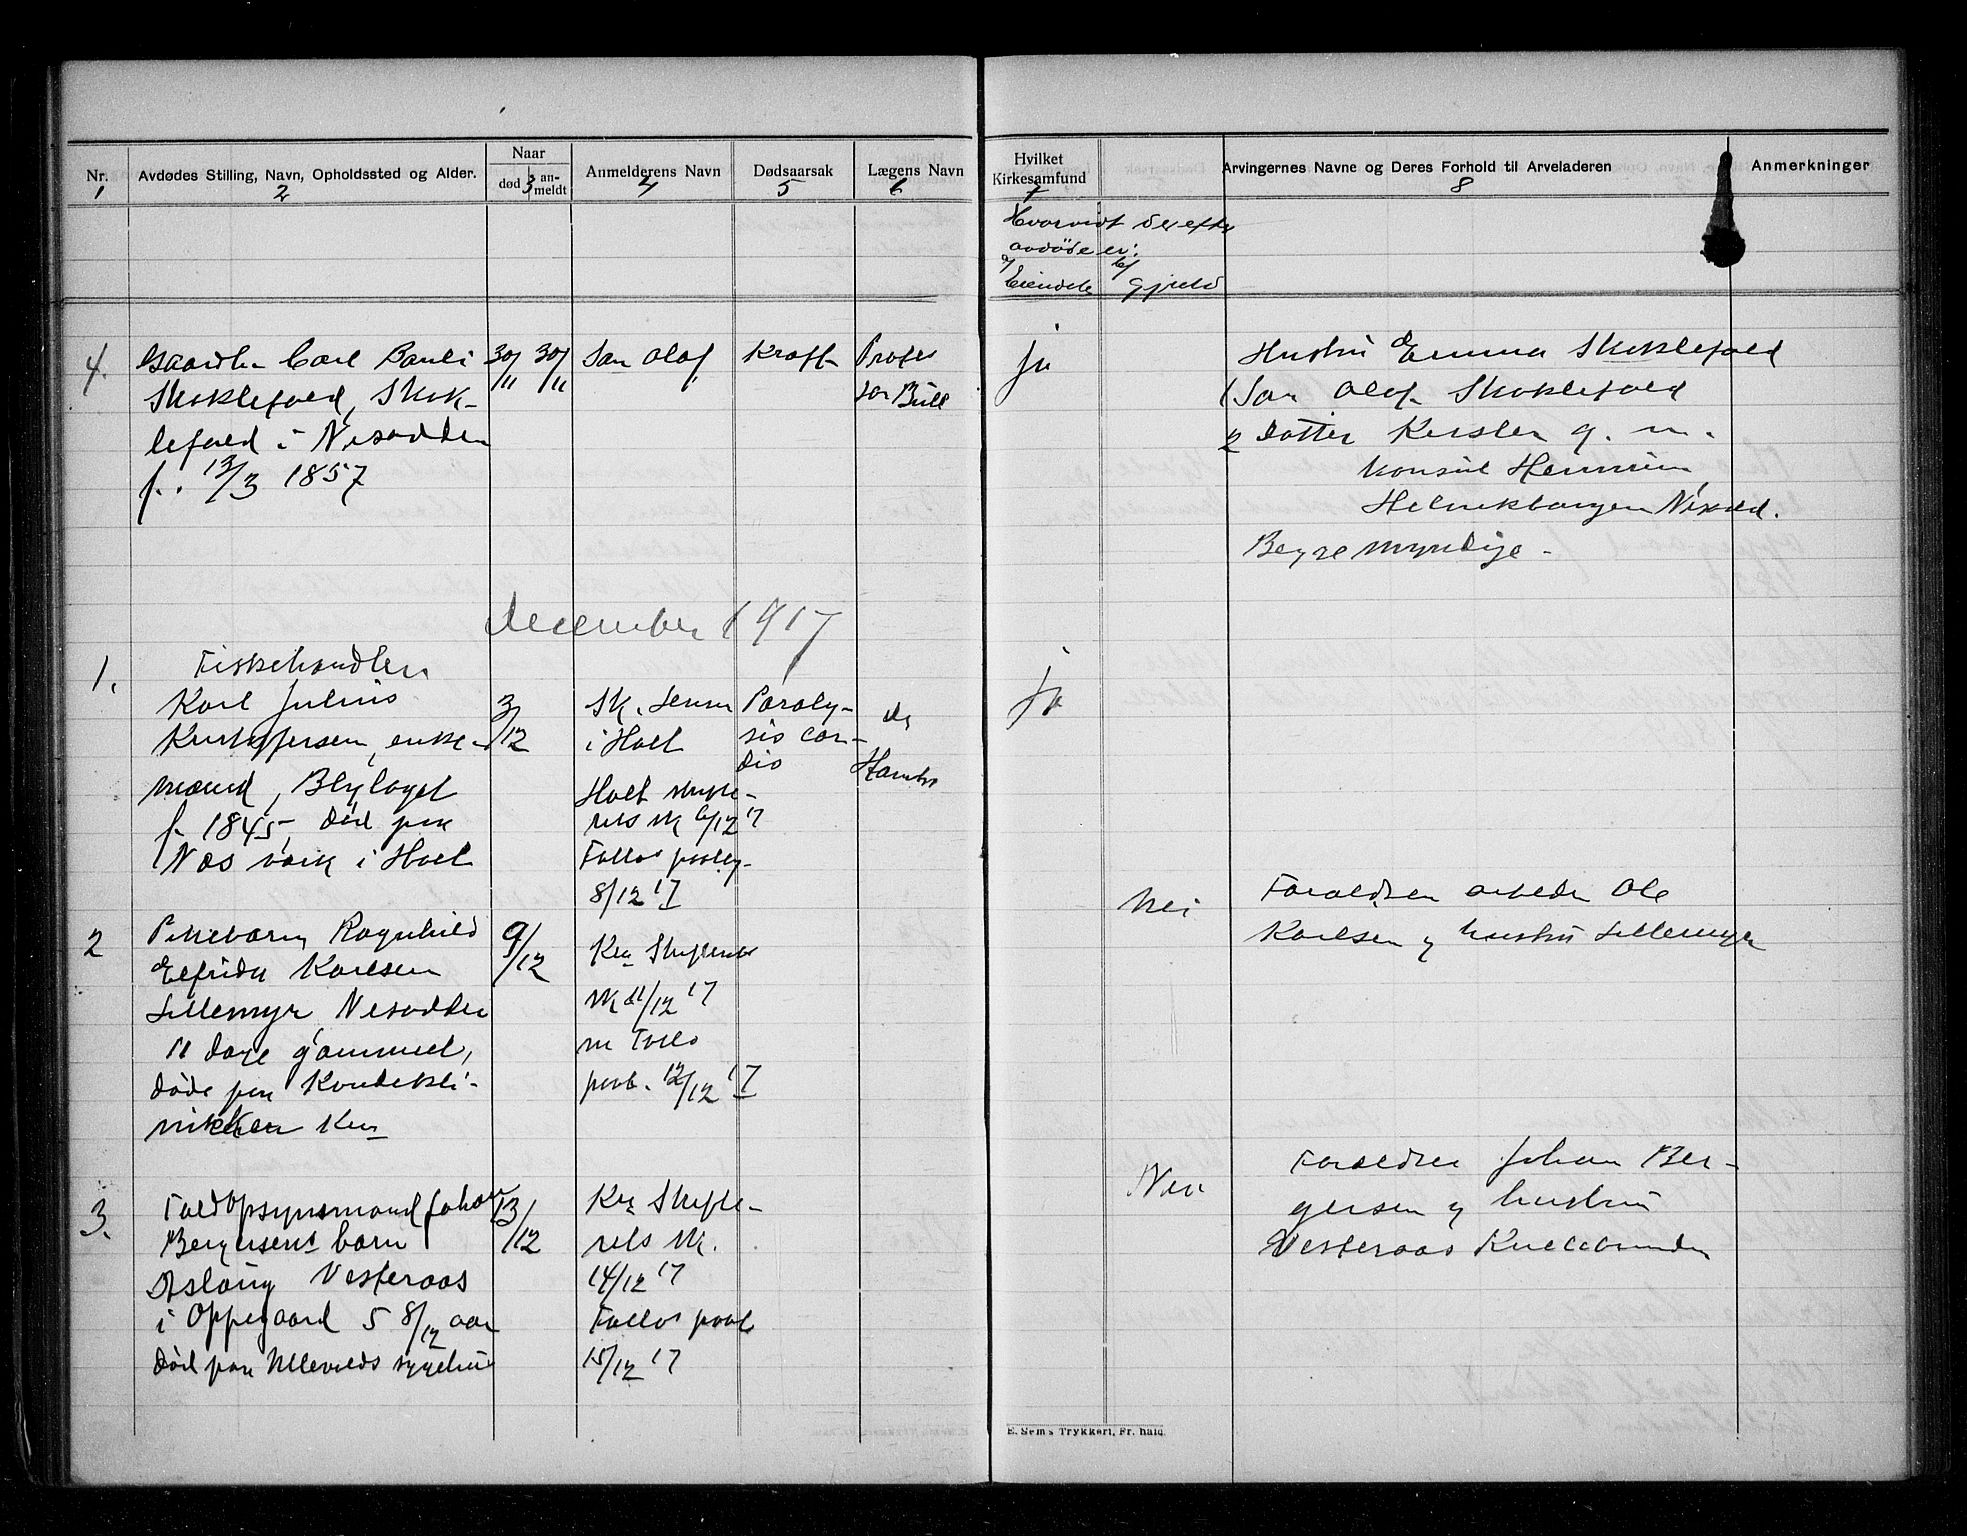 Nr.
1
Avdødes Stilling, Navn, Opholdssted og Alder.
2
Naar
død 3 an-
meldt
Anmelderens Navn
4
Dødsaarsak
5
Lægens Navn
6
Hvilket
Kirkesamfund
7
Arvingernes Navne og Deres Forhold til Arveladeren
8
Anmerkninger
Hvorvidt der efter
avdøde er:
a/ b/
Eiendele Gjeld
4.
Gaardbr. Carl Pauli
Skoklefald, Skok-
lefald i Nesodden
f. 13/3 1857
30/11
30/11
Søn Olaf
Kræft
Profes
sor Bull
ja
Hustru Emma Skoklefald
1 Søn Olaf Skoklefald
2 Datter Kirsten g. m.
Konsul
Nesod.
Begge myndige -
december 1917
1.
Fiskehandler
Karl Julius
Kristoffersen, enke-
mand, Blylaget
f. 1845, død paa
Næs værk i Holt
3/12
Sk. Jensen
i Holt
Holt skifte-
rets sk 6/12 17
Follos
8/12 17
Paraly-
sis cor-
dis
dr
ja
2
Pikebarn Ragnhild
Elfrida Karlsen
Lillemyr Nesodden
11 dage gammel,
døde paa
Kra
9/12
Kra Skifterets
sk 11/12 17
m Follo
12/12 17
Nei
Forældre arbeider Ole
Karlsen og hustru Lillemyr
3.
Toldopsynsmand Johan
Bergersens barn
Aslaug Vesteraas
i Oppegaard 5 8/12 aar
død paa Ullevolds sygehus
13/12
Kra Skifte-
rets sk.
14/12 17
Follos
15/12 17
Nei
Forældre Johan Ber-
gersen og hustru
Vesteraas Kullebunden
E. Sem's Trykkeri, Fr. hald.